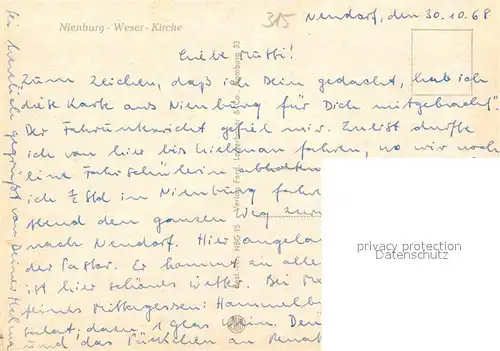 Nienburg - Weser - Kirche
315
Nendorf, den 30.10.68
Liebe Mutti!
Zum Zeichen, daß ich Dein gedacht, hab ich
diese Karte aus Nienburg für Dich mitgebracht".
Der Fahrunterricht gefiel mir. Zuerst durfte
ich von hier bis fahren, wo wir noch
eine Fahrschülerin abholten
ich ½ Std in Nienburg fahr
Abend den ganzen Weg zurü
nach Nendorf. Hier angela
der Pastor. Er kommt zu alle
ist hier schönes Wetter. Bei
feines Mittagessen: Hammelb
Salat; dazu 1 Glas Wein. Den
und das Päckchen an Renat
Sei herzlich gegrüßt von Deiner
privacy protection
Datenschutz